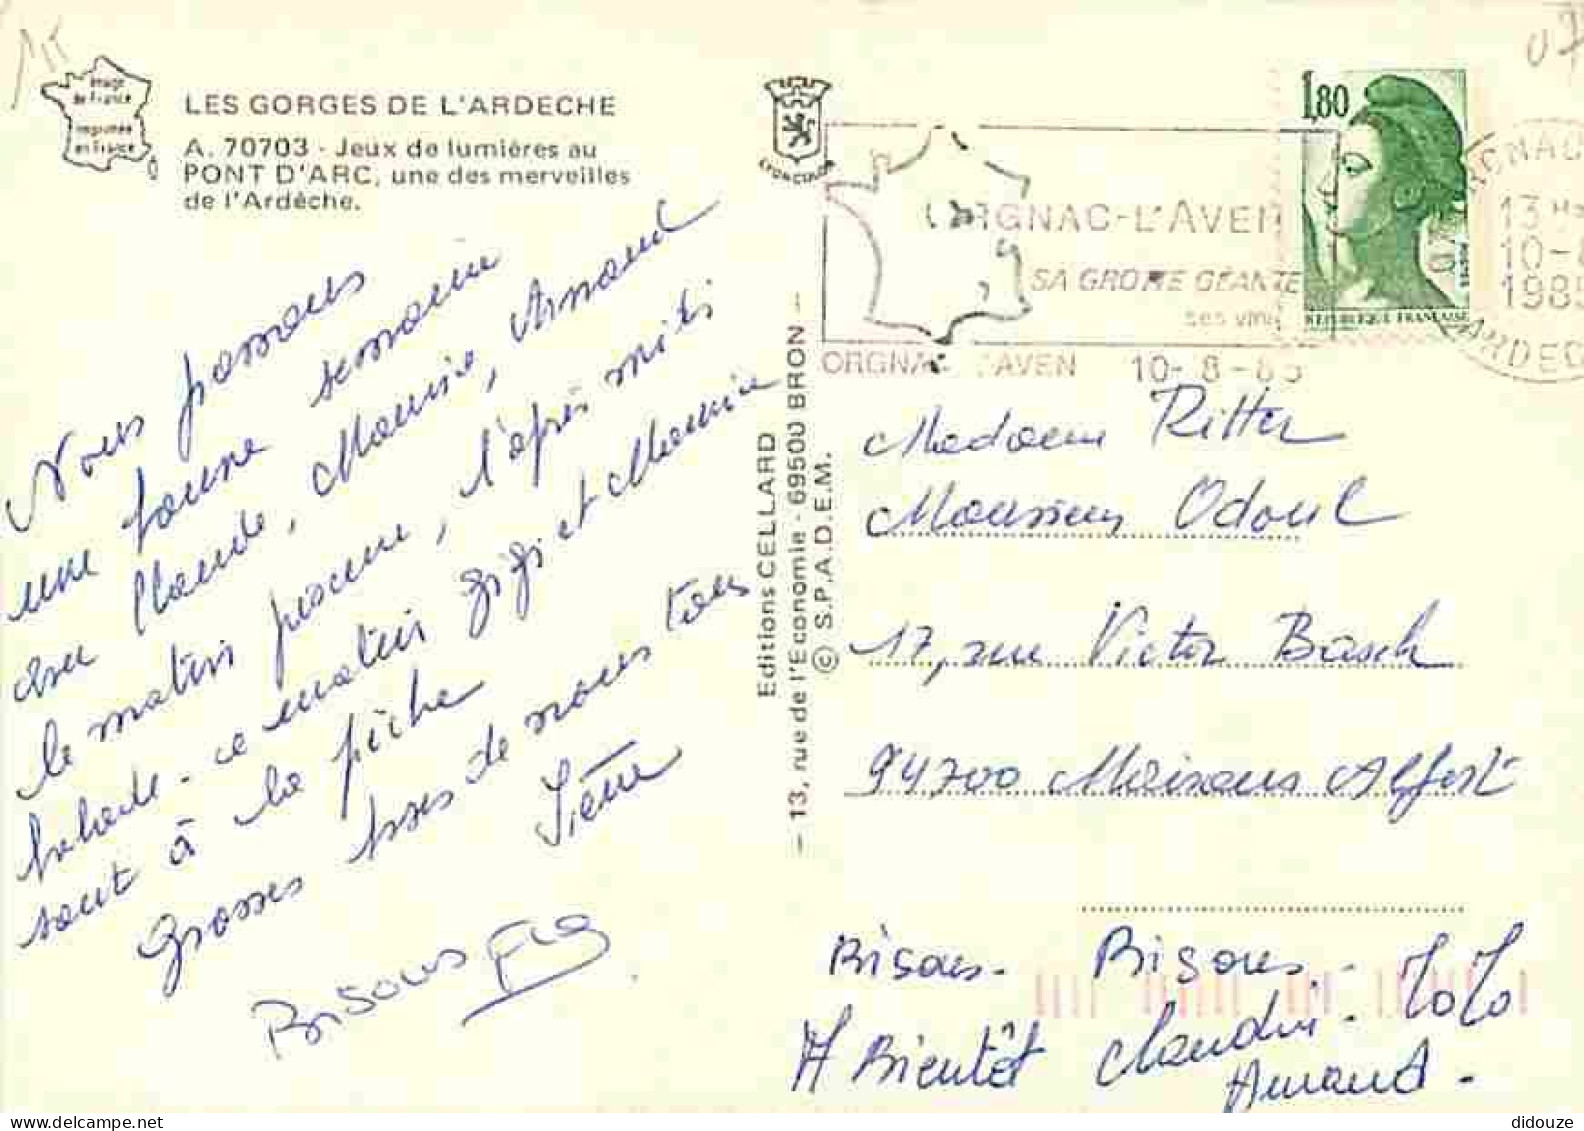 Image
de France
imprimée
en France
LES GORGES DE L'ARDECHE
A. 70703 - Jeux de lumières au
PONT D'ARC, une des merveilles
de l'Ardèche.
Nous passons
une bonne semaine
avec Claude, Mauricie, Arnaud
le matin piscine, l'après midi
balade - ce matin Gigi et Mamie
sont à la pêche
Grosses bises de nous tous
Bisous
Editions CELLARD
13, rue de l'Economie - 69500 BRON
© S.P.A.D.E.M.
LYONCOLOR
ORGNAC-L'AVEN
SA GROTTE GEANTE
ses vins
ORGNAC L'AVEN 10-8-85
1,80
REPUBLIQUE FRANÇAISE
ORGNAC
13 H
10-8
1985
ARDECHE
07
Madame Ritter
Monsieur Odoul
17, rue Victor Basch
94700 Maisons Alfort
Bisous - Bisous - JoJo
A Bientôt Claudie -
Arnaud -
didouze